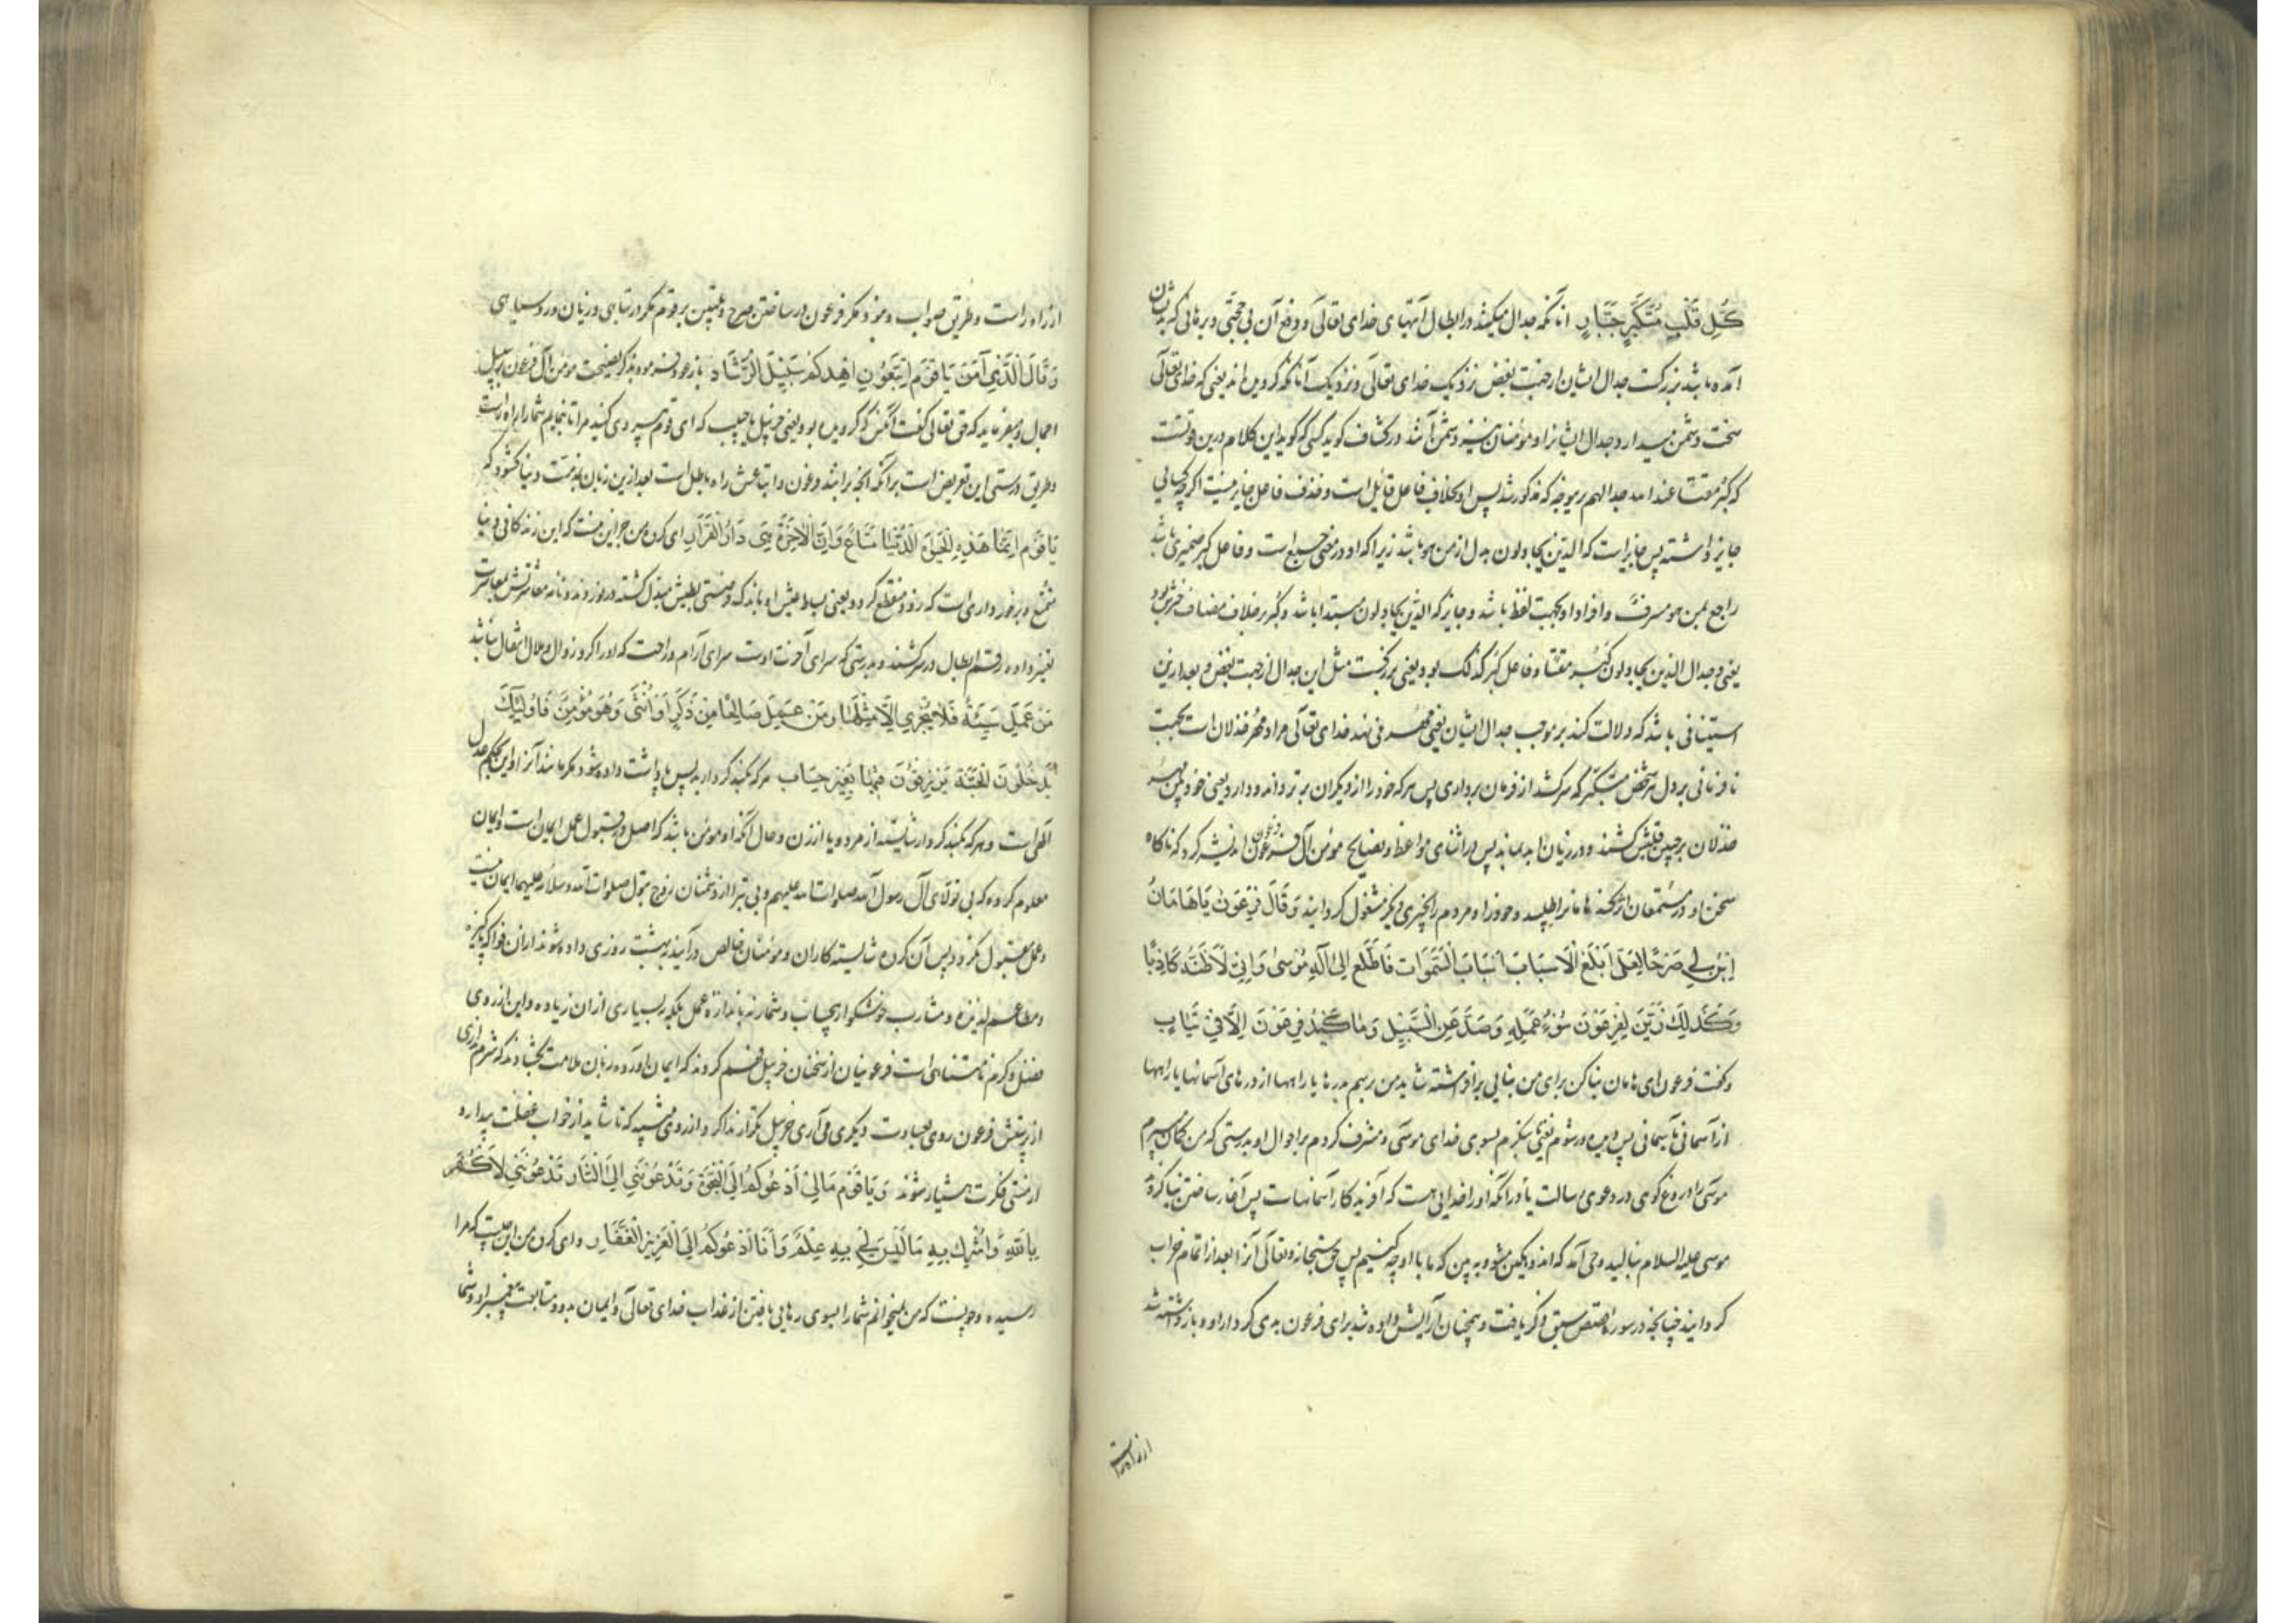 كُلِّ قَلْبِ مُتَكَبِّرٍ جَبَّارٍ آنانکه جدال میکنند در ابطال آیتهای خدای تعالی و دفع آن بی حجتی و برهانی که بدیشان
آمده باشد بزرگست جدال ایشان از جهت بغض نزدیک خدای تعالی و نزدیک آنانکه گرویده اند یعنی که خدای تعالی
سخت دشمن میدارد جدال ایشانرا و مؤمنان نیز دشمن آنند در کشاف گوید کسی که گوید این کلام درین قوتست
که کبر مقتا عند الله جدالهم بر موجه که مذکور شد پس او بخلاف فاعل قائل است و حذف فاعل جایز نیست اگرچه کسائی
جایز داشته پس جایز است که الذین یجادلون بدل از من هو باشد زیرا که او در معنی جمیع است و فاعل کبر ضمیری باشد
راجع بمن هو مسرف و افراد او بجهت لفظ باشد و جایز که الذین یجادلون مبتدا باشد و کبر بر خلاف مضاف خبرش بود
یعنی و جدال الذین یجادلون کبر مقتا و فاعل کبر کذلک بود یعنی بزرگست مثل این جدال از جهت بغض و بعد ازین
استینافی باشد که دلالت کند بر موجب جدال ایشان یعنی مهر می نهد خدای تعالی مراد مهر خذلان است بجهت
نافرمانی بر دل هر شخص متکبر که سرکشد از فرمان برداری پس هر که خود را از دیگران برتر داند و دارد یعنی خودبین مهر
خذلان بر جبین قلبش کشند و در زیان ابد بماند پس در اثنای مواعظ و نصایح مؤمن آل فرعون فرعون اندیشه کرد که ناگاه
سخن او در مستمعان اثر کند هامانرا طلبید و خود را و مردم را بچیزی دیگر مشغول گردانید وَقَالَ فِرْعَوْنُ يَا هَامَانُ
ابْنِ لِي صَرْحًا لَعَلِّي أَبْلُغُ الْأَسْبَابَ أَسْبَابَ السَّمَوَاتِ فَأَطَّلِعَ إِلَى إِلَهِ مُوسَى وَإِنِّي لَأَظُنُّهُ كَاذِبًا
وَكَذَلِكَ زُيِّنَ لِفِرْعَوْنَ سُوءُ عَمَلِهِ وَصُدَّ عَنِ السَّبِيلِ وَمَا كَيْدُ فِرْعَوْنَ إِلَّا فِي تَبَابٍ
و گفت فرعون ای هامان بنا کن برای من بنایی برافراشته شاید من برسم بدرها یا راهها از درهای آسمانها یا راهها
از آسمانی بآسمانی پس دیده ور شوم یعنی بنگرم بسوی خدای موسی و مشرف گردم بر احوال او بدرستی که من گمان میبرم
موسی را دروغ گوی در دعوی رسالت یا در آنکه او را خدایی هست که آفریدگار آسمانهاست پس آغاز ساختن بنا کرد
موسی علیه السلام بنالید وحی آمد که اندوهگین مشو و به بین که ما با او چه کنیم پس حق سبحانه و تعالی آنرا بعد از اتمام خراب
گردانید چنانچه در سوره قصص سبق ذکر یافت و همچنان آرایش داده شد برای فرعون بدی کردار او و باز داشته شد
از راه راست
از راه راست و طریق صواب و نبود مکر فرعون در ساختن صرح و تلبیس بر قوم مگر در تباهی و زیان و روسیاهی
وَقَالَ الَّذِي آمَنَ يَا قَوْمِ اتَّبِعُونِ أَهْدِكُمْ سَبِيلَ الرَّشَادِ باز رجوع فرموده بذکر نصیحت مؤمن آل فرعون بر سبیل
اجمال و میفرماید که حق تعالی گفت آنکس که گرویده بود یعنی خربیل یا حبیب که ای قوم پیروی کنید مرا تا بنمایم شما را راه راست
و طریق درستی این تعریض است بر آنکه آنچه برانند فرعون و اتباعش راه باطل است بعد ازین زبان بمذمت دنیا گشود که
يَا قَوْمِ إِنَّمَا هَذِهِ الْحَيَوةُ الدُّنْيَا مَتَاعٌ وَإِنَّ الْآخِرَةَ هِيَ دَارُ الْقَرَارِ ای گروه من جز این نیست که این زندگانی دنیا
تمتع و برخورداری است که زود منقطع گردد یعنی بساط عیش او باندک فرصتی بطیش مبدل گشته
تغیر داده رقم ابطال در سر کشند و بدرستی که سرای آخرت اوست سرای آرام و راحت که او را گرد زوال و ملال انتقال نباشد
مَنْ عَمِلَ سَيِّئَةً فَلَا يُجْزَى إِلَّا مِثْلَهَا وَمَنْ عَمِلَ صَالِحًا مِنْ ذَكَرٍ أَوْ أُنْثَى وَهُوَ مُؤْمِنٌ فَأُولَئِكَ
يَدْخُلُونَ الْجَنَّةَ يُرْزَقُونَ فِيهَا بِغَيْرِ حِسَابٍ هر که بکند کردار بد پس پاداشت داده نشود مگر مانند آنرا و این بحکم عدل
الهی است و هر که بکند کردار شایسته از مرد و یا از زن و حال آنکه او مؤمن باشد که اصل در قبول عمل ایمان است و ایمان
معلوم کرده که بی تولای آل رسول الله صلوات الله علیهم و بی تبرا از دشمنان زوج بتول صلوات الله و سلامه علیهما ایمان نیست
و عمل مقبول نگردد پس آن گروه شایسته کاران و مؤمنان خالص درآیند به بهشت روزی داده شوند از ان فواکه پاکیزه
و مطاعم لذیذه و مشارب خوشگوار بیحساب و شمار نه باندازه عمل بلکه بسیاری از ان زیاده و این از روی
فضل و کرم نامتناهی است فرعونیان از سخنان خربیل فهم کردند که ایمان آورده زبان ملامت بگشادند که شرم نداری
از پرستش فرعون روی بعبادت دیگری می آری خربیل تکرار ندا کرد از روی تنبیه که تا شاید از خواب غفلت بیدار و
از مستی فکرت هشیار شوند وَيَا قَوْمِ مَا لِي أَدْعُوكُمْ إِلَى النَّجَوةِ وَتَدْعُونَنِي إِلَى النَّارِ تَدْعُونَنِي لِأَكْفُرَ
بِاللَّهِ وَأُشْرِكَ بِهِ مَا لَيْسَ لِي بِهِ عِلْمٌ وَأَنَا أَدْعُوكُمْ إِلَى الْعَزِيزِ الْغَفَّارِ و ای گروه من این چیست که مرا
رسیده و چونست که من میخوانم شما را بسوی رهایی یافتن از عذاب خدای تعالی و ایمان بدو و متابعت پیغمبر او و شما